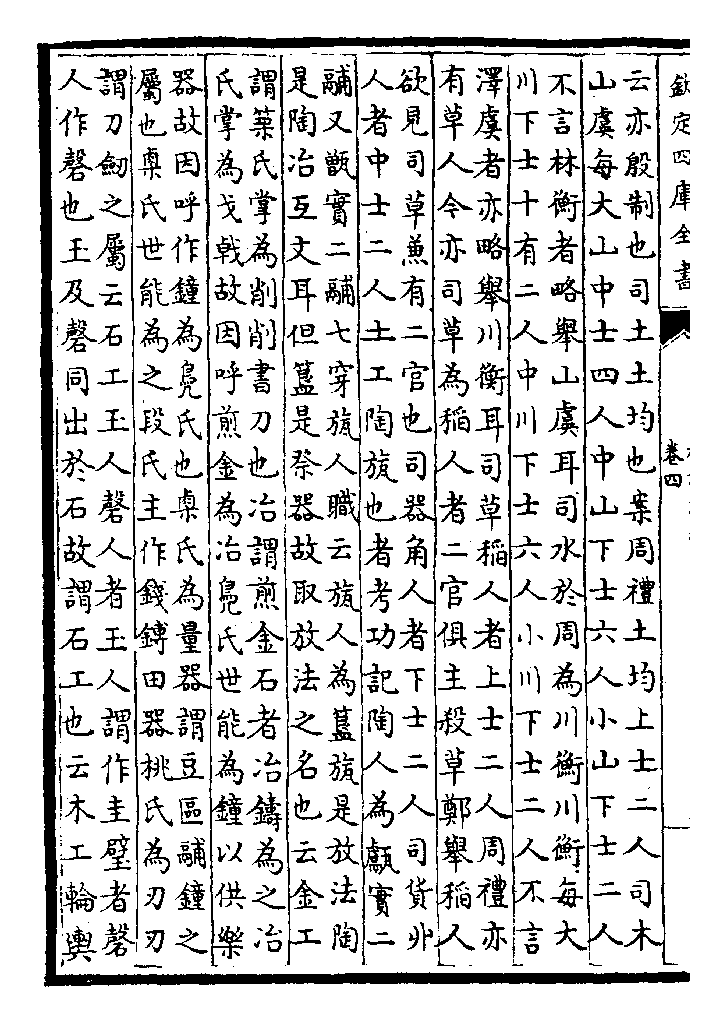 欽定四庫全書
卷四
云亦殷制也司土土均也案周禮土均上士二人司木
山虞每大山中士四人中山下士六人小山下士二人
不言林衡者略舉山虞耳司水於周為川衡川衡每大
川下士十有二人中川下士六人小川下士二人不言
澤虞者亦略舉川衡耳司草稻人者上士二人周禮亦
有草人今亦司草為稻人者二官俱主殺草鄭舉稻人
欲見司草兼有二官也司器角人者下士二人司貨丱
人者中士二人土工陶旊也者考功記陶人為甗實二
鬴又甑實二鬴七穿旊人職云旊人為簋旊是放法陶
是陶冶互文耳但簋是祭器故取放法之名也云金工
謂築氏掌為削削書刀也冶謂煎金石者冶鑄為之冶
氏掌為戈戟故因呼煎金為冶鳧氏世能為鐘以供樂
器故因呼作鐘為鳧氏也㮚氏為量器謂豆區鬴鐘之
屬也㮚氏世能為之段氏主作錢鎛田器桃氏為刃刃
謂刀劒之屬云石工玉人磬人者玉人謂作圭璧者磬
人作磬也玉及磬同出於石故謂石工也云木工輪輿